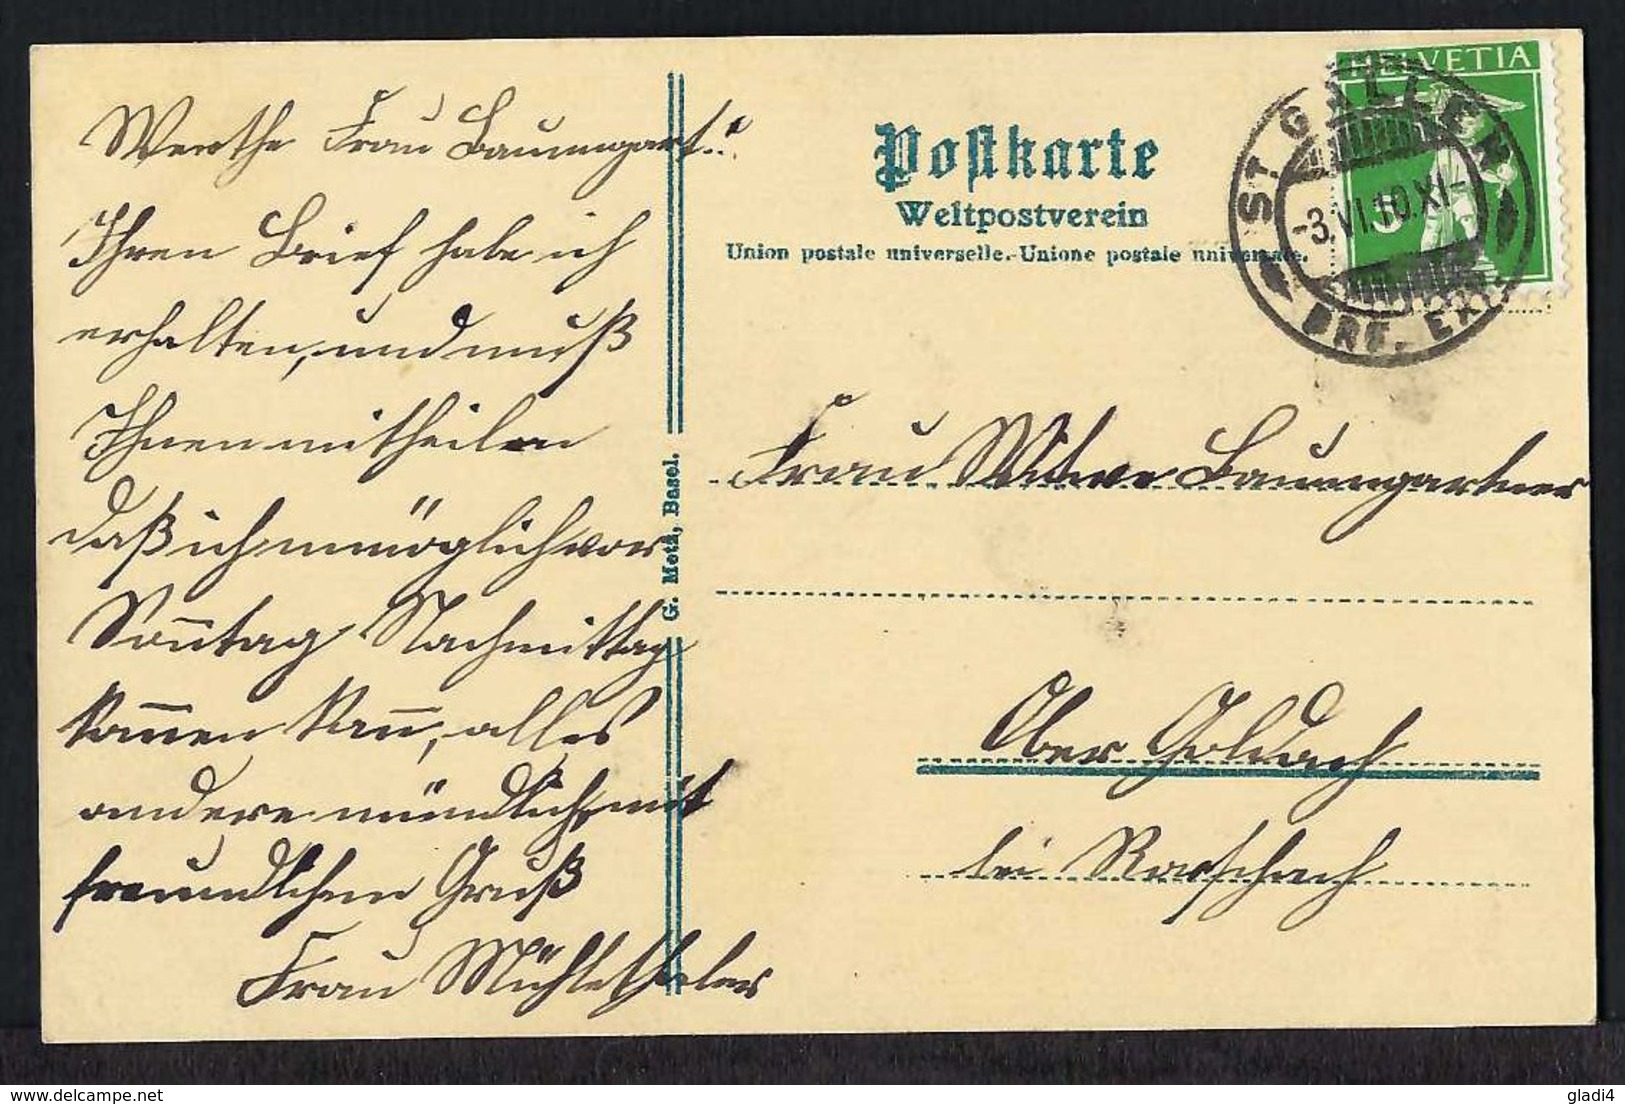 Werthe Frau Baumgart..!
Ihren Brief habe ich
erhalten, und muß
Ihnen mittheilen
daß ich unmöglich vor
Sonntag Nachmittag
kommen kann, alles
andere mündlich, mit
freundlichem Gruß
Frau Mühlethaler
G. Metz, Basel.
Postkarte
Weltpostverein
Union postale universelle.-Unione postale universale.
HELVETIA
5
ST. GALLEN
-3.VI.10.XI-
BRF. EXP.
Frau Witwe Baumgartner
Ober Goldach
bei Rorschach
gladi4